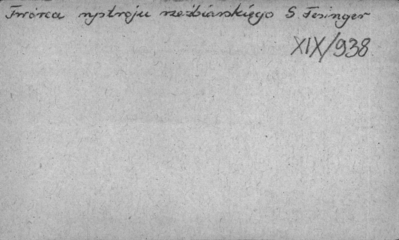 Twórca wystroju rzeźbiarskiego S. Fesinger
XIX/938